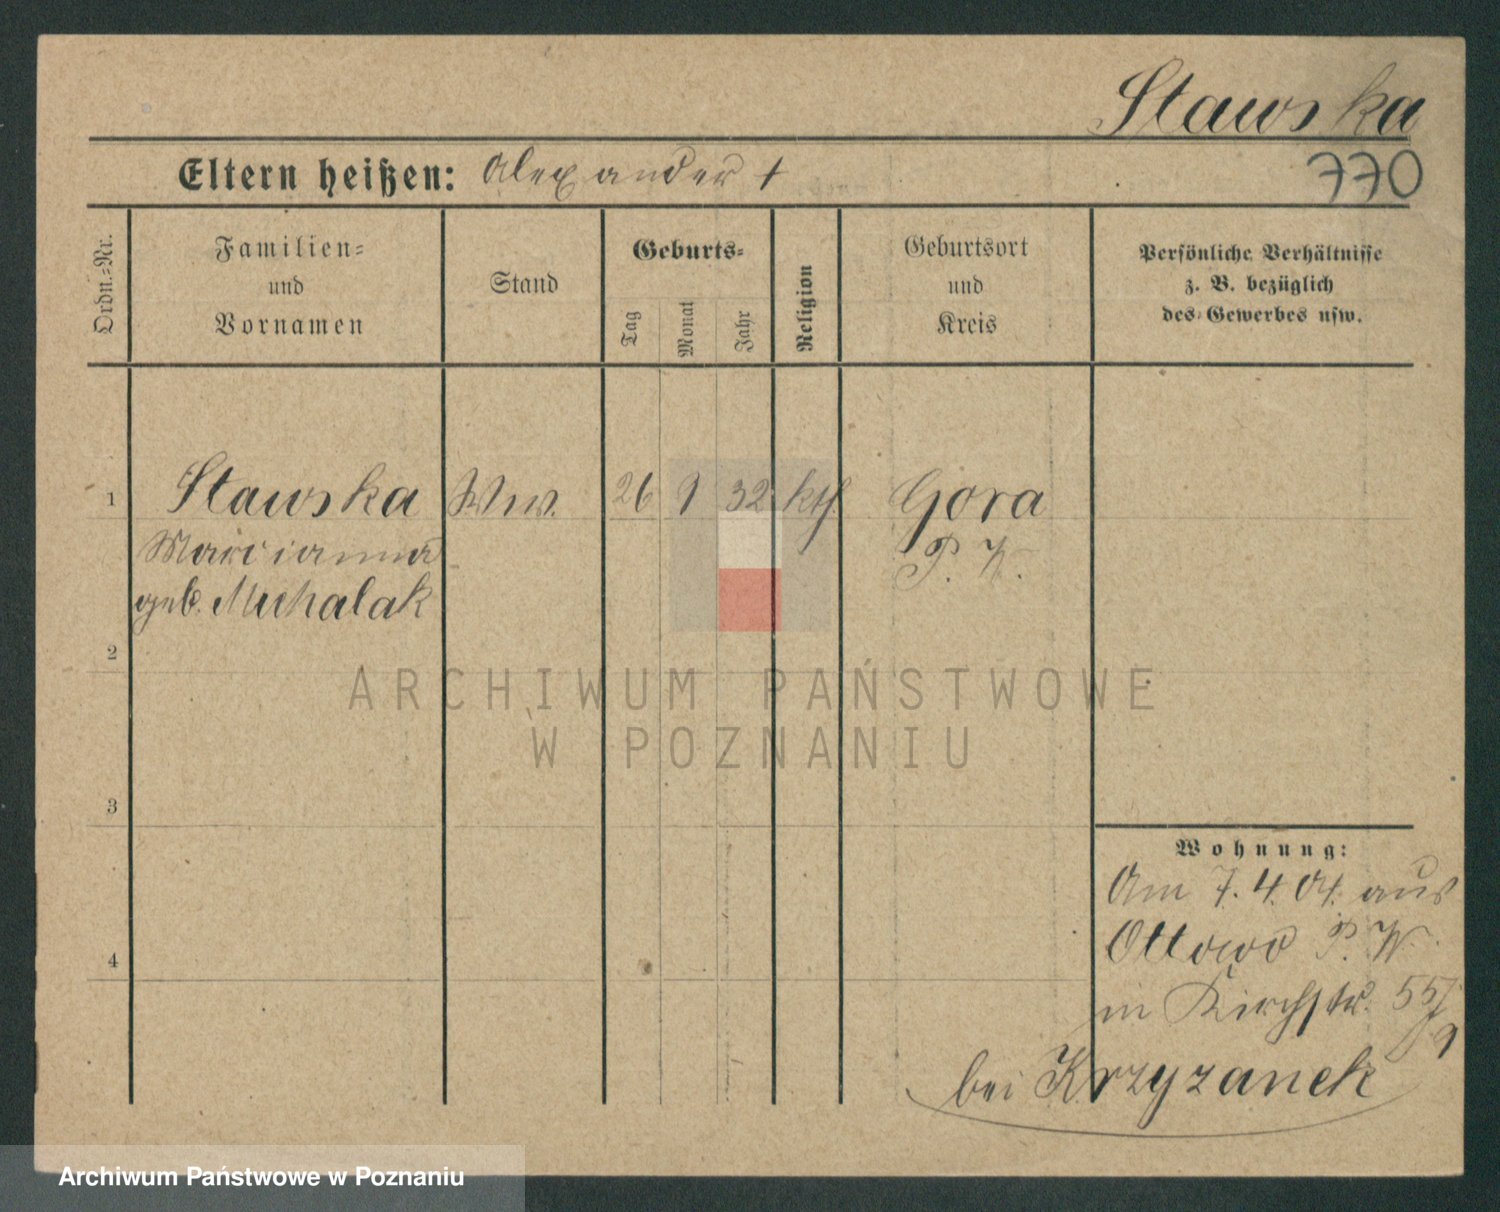 Stawska
Eltern heißen: Alexander †
770
Ordn.=Nr.
Familien=
und
Vornamen
Stand
Geburts=
Tag
Monat
Jahr
Religion
Geburtsort
und
Kreis
Persönliche Verhältnisse
z. B. bezüglich
des Gewerbes usw.
1
Stawska Ww. 26 9 32 kth. Gora
Marcianna P. W.
geb. Michalak
2
3
4
ARCHIWUM PAŃSTWOWE
W POZNANIU
Wohnung:
Am 7. 4. 04. aus
Ottowo P. W.
in Kirchstr. 55/9
bei Krzyzanek
Archiwum Państwowe w Poznaniu